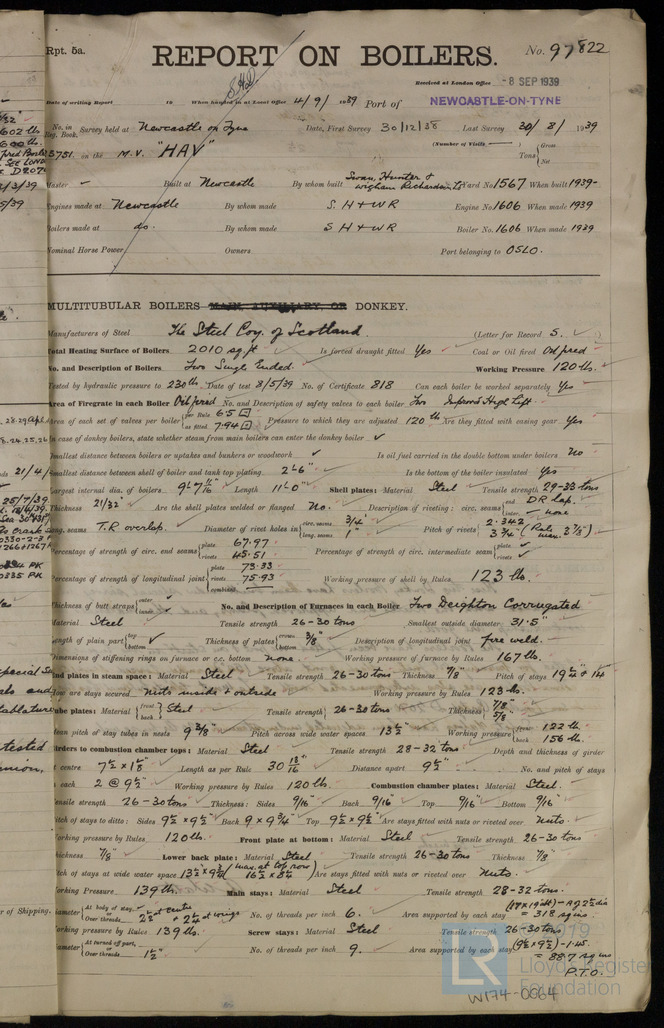 Rpt. 5a.
REPORT ON BOILERS.
No. 97822
Received at London Office -8 SEP 1939
Date of writing Report 19 When handed in at Local Office 4/9/1939 Port of NEWCASTLE-ON-TYNE
No. in Reg. Book. Survey held at Newcastle on Tyne Date, First Survey 30/12/38 Last Survey 30/8/1939
(Number of Visits)
3751 on the M.V. "HAV" Tons Gross Net
Master Built at Newcastle By whom built Swan, Hunter & Wigham Richardson Ltd Yard No. 1567 When built 1939
Engines made at Newcastle By whom made S. H & W R Engine No. 1606 When made 1939
Boilers made at do. By whom made S H & W R Boiler No. 1606 When made 1939
Nominal Horse Power Owners Port belonging to OSLO.
MULTITUBULAR BOILERS MAIN, AUXILIARY, OR DONKEY.
Manufacturers of Steel The Steel Coy. of Scotland (Letter for Record S.)
Total Heating Surface of Boilers 2010 sq ft Is forced draught fitted Yes Coal or Oil fired Oil fired
No. and Description of Boilers Two Single Ended Working Pressure 120 lbs.
Tested by hydraulic pressure to 230 lb Date of test 8/5/39 No. of Certificate 818 Can each boiler be worked separately Yes
Area of Firegrate in each Boiler Oil fired No. and Description of safety valves to each boiler Two Improved High Lift
Area of each set of valves per boiler per Rule 6.5 as fitted 7.94 Pressure to which they are adjusted 120 lb Are they fitted with easing gear Yes
In case of donkey boilers, state whether steam from main boilers can enter the donkey boiler
Smallest distance between boilers or uptakes and bunkers or woodwork Is oil fuel carried in the double bottom under boilers No
Smallest distance between shell of boiler and tank top plating 2'-6" Is the bottom of the boiler insulated Yes
Largest internal dia. of boilers 9'-7 11/16" Length 11'-0" Shell plates: Material Steel Tensile strength 29-33 tons
Thickness 21/32" Are the shell plates welded or flanged No. Description of riveting: circ. seams end D R lap. inter. none
long. seams T.R overlap. Diameter of rivet holes in circ. seams 3/4" long. seams 1" Pitch of rivets 2.342 3 3/4" (Rule max. 3 7/8")
Percentage of strength of circ. end seams plate 67.97 rivets 45.51 Percentage of strength of circ. intermediate seam plate rivets
Percentage of strength of longitudinal joint plate 73.33 rivets 75.93 combined Working pressure of shell by Rules 123 lbs.
Thickness of butt straps outer inner No. and Description of Furnaces in each Boiler Two Deighton Corrugated
Material Steel Tensile strength 26-30 tons Smallest outside diameter 31.5"
Length of plain part top bottom Thickness of plates crown bottom 3/8" Description of longitudinal joint fire weld.
Dimensions of stiffening rings on furnace or c.c. bottom none Working pressure of furnace by Rules 167 lb.
End plates in steam space: Material Steel Tensile strength 26-30 tons Thickness 7/8" Pitch of stays 19 1/2" + 14
How are stays secured Nuts inside & outside Working pressure by Rules 123 lb.
Tube plates: Material front back Steel Tensile strength 26-30 tons Thickness 7/8" 5/8"
Mean pitch of stay tubes in nests 9 3/8" Pitch across wide water spaces 13 1/2" Working pressure front 122 lb back 156 lb.
Girders to combustion chamber tops: Material Steel Tensile strength 28-32 tons Depth and thickness of girder
at centre 7 1/2" x 1 1/8" Length as per Rule 30 13/16" Distance apart 9 1/2" No. and pitch of stays
in each 2 @ 9 1/2" Working pressure by Rules 120 lbs Combustion chamber plates: Material Steel.
Tensile strength 26-30 tons Thickness: Sides 9/16" Back 9/16" Top 9/16" Bottom 9/16"
Pitch of stays to ditto: Sides 9 1/2 x 9 1/2" Back 9 x 9 3/4" Top 9 1/2" x 9 1/2" Are stays fitted with nuts or riveted over Nuts.
Working pressure by Rules 120 lbs. Front plate at bottom: Material Steel Tensile strength 26-30 tons
Thickness 7/8" Lower back plate: Material Steel Tensile strength 26-30 tons Thickness 7/8"
Pitch of stays at wide water space 13 1/2" x 9 3/4 (max. at top row) 16 1/2" x 8 1/2" Are stays fitted with nuts or riveted over Nuts.
Working Pressure 139 lb. Main stays: Material Steel Tensile strength 28-32 tons.
Diameter At body of stay, or Over threads 2 1/2" at centre 2 1/4" at wings No. of threads per inch 6. Area supported by each stay = 318 sq ins
Working pressure by Rules 139 lb. Screw stays: Material Steel Tensile strength 26-30 tons
Diameter At turned off part, or Over threads 1 1/2" No. of threads per inch 9. Area supported by each stay (9 1/2 x 9 1/2) - 1.45 = 88.7 sq ins
P.T.O.
W174-0064
© 2019
Lloyd's Register
Foundation